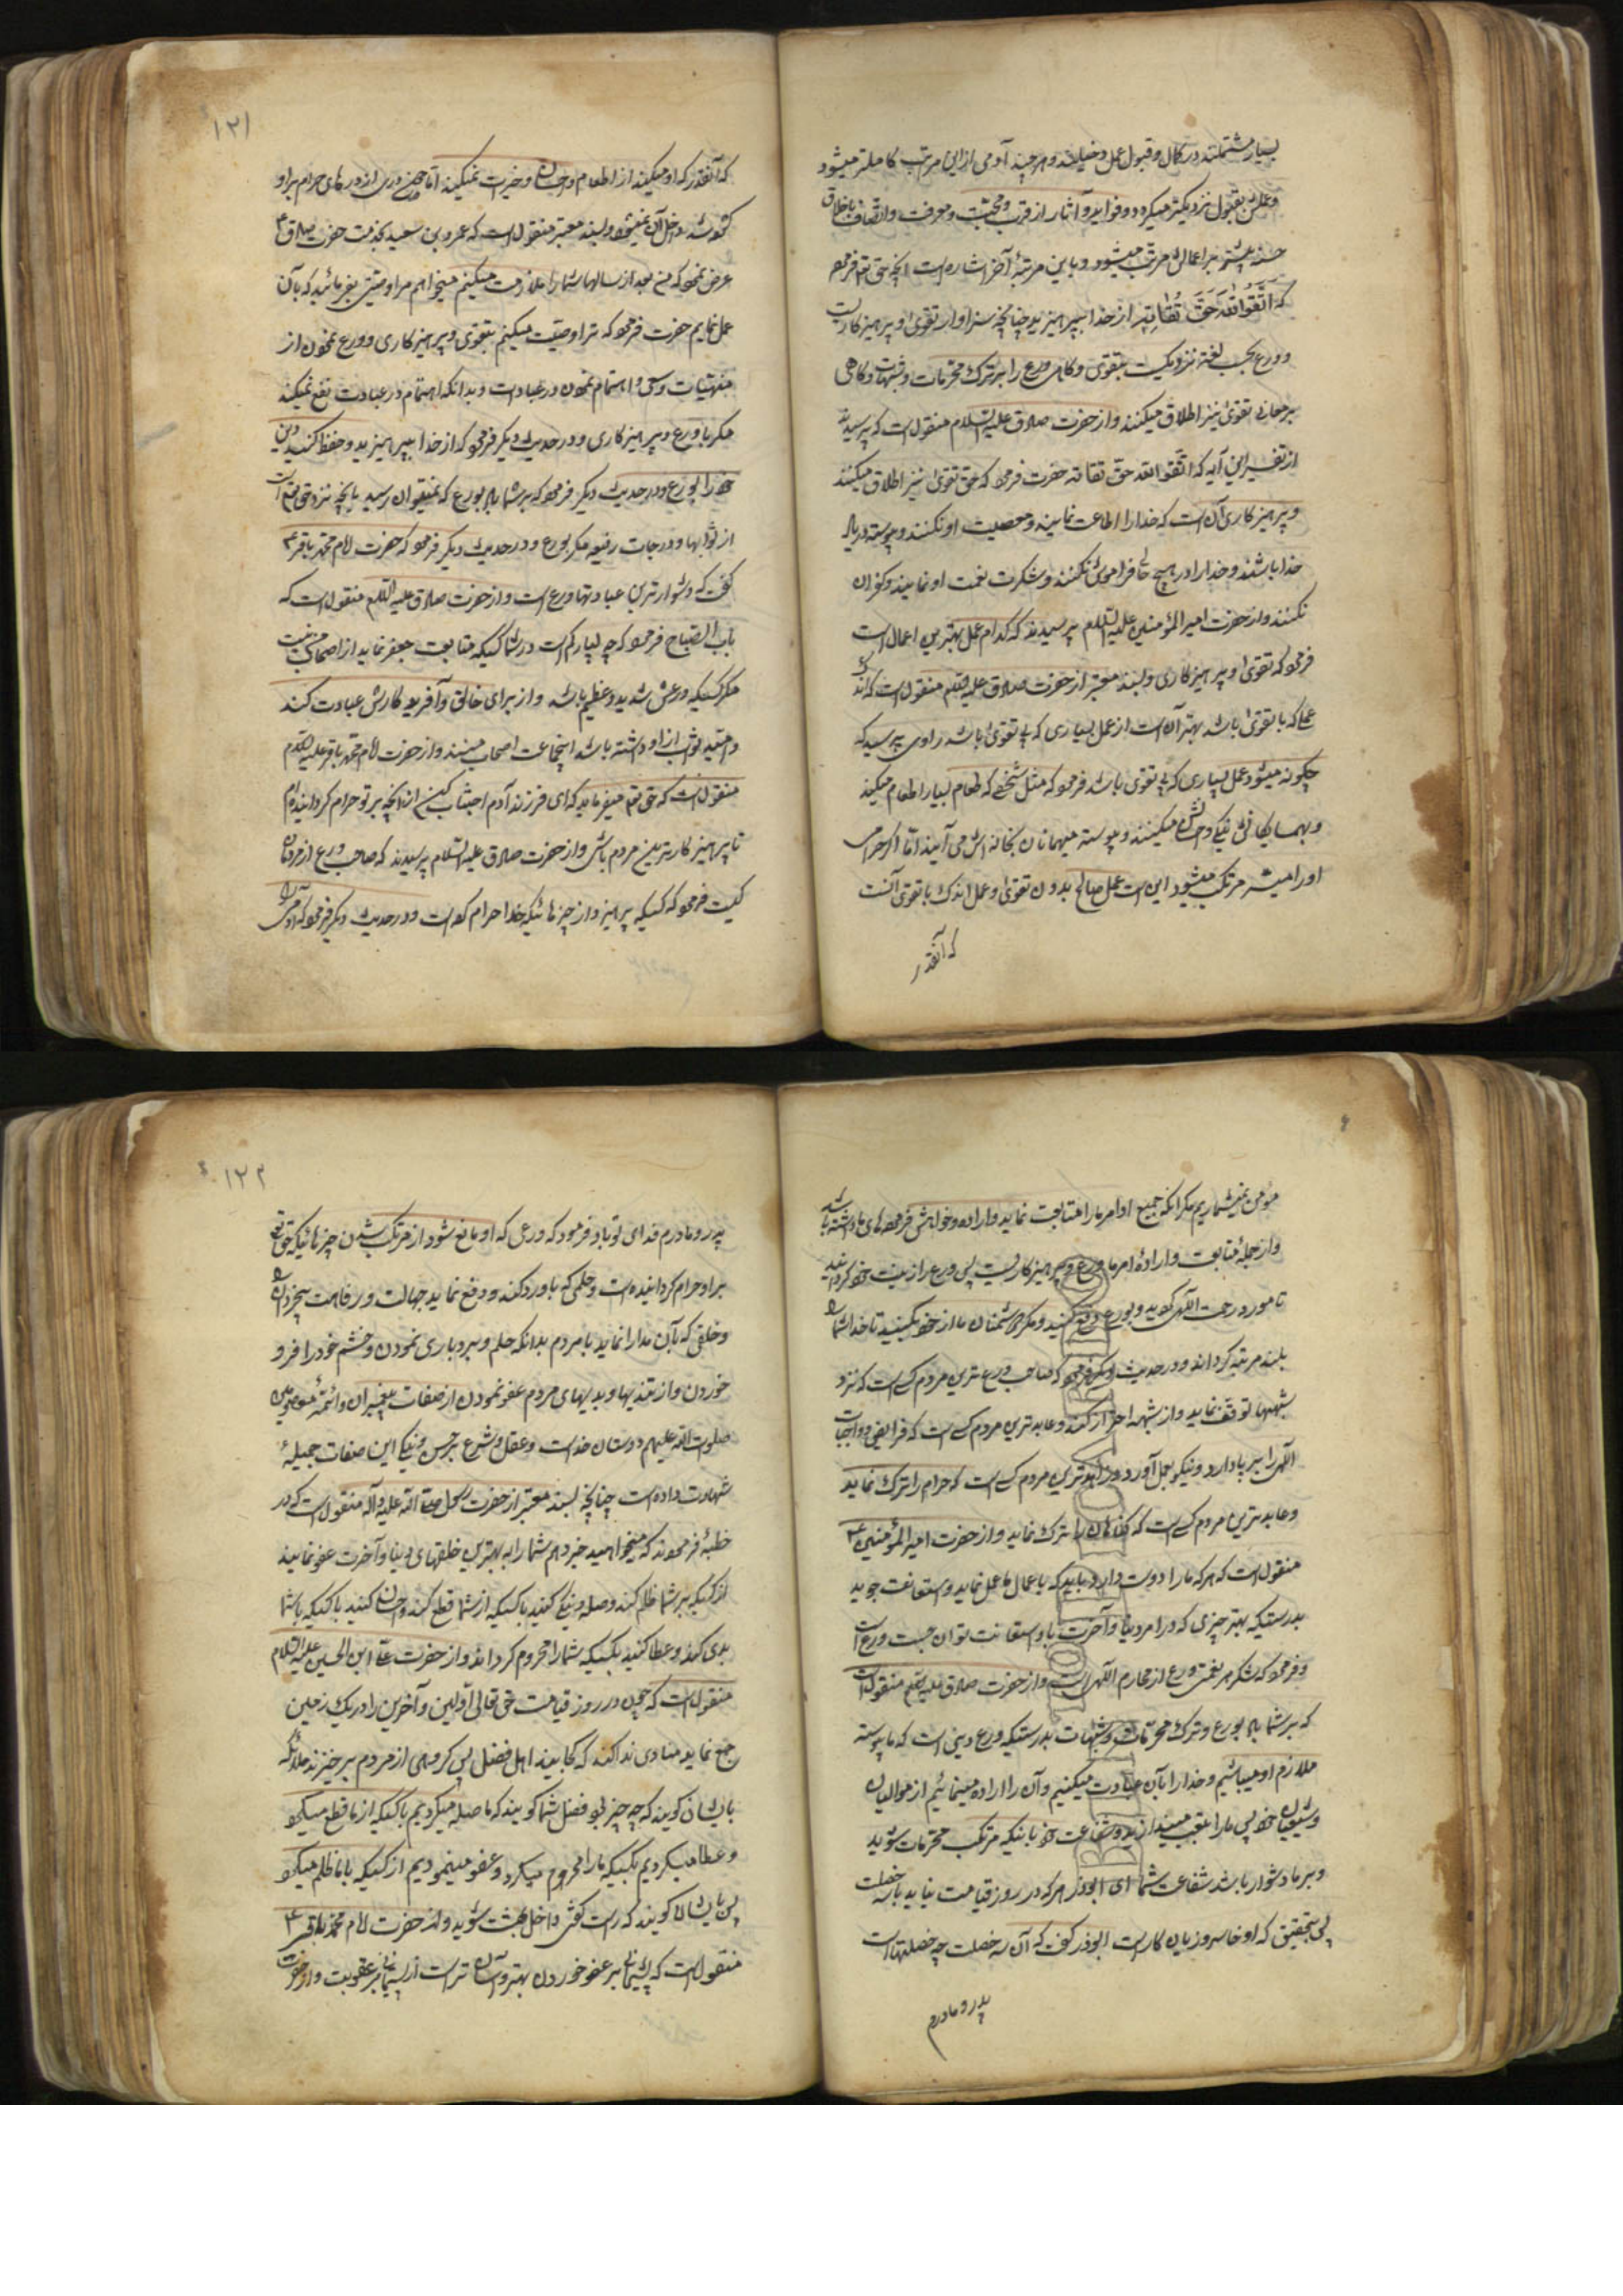 بسیار مشتملند در کمال و قبول عمل دخیلند و هر چند آدمی از این مراتب کاملتر میشود
و عملش بقبول نزدیکتر میکردد و فواید و آثار از قرب و محبت و معرفت و اتصاف باخلاق
حسنه بیشتر بر اعمال او مرتب میشود و باین مرتبهٔ آخر اشاره است آنچه حق تعم فرموده
که اتَّقُوا اللهَ حَقَّ تُقَاتِهِ از خدا بپرهیزید چنانچه سزاوار تقوی و پرهیزکاریست
و ورع بحسب لغة نزدیکست بتقوی و گاهی ورع را بر ترک محرمات و شبهات و گاهی
بر معانی تقوی نیز اطلاق میکنند و از حضرت صادق علیه السلام منقول است که پرسیدند
از تفسیر این آیه که اتقوا الله حق تقاته حضرت فرمود که حق تقوی نیز اطلاق میکنند
و پرهیزکاری آن است که خدا را اطاعت نمایند و معصیت او نکنند و پیوسته در یاد
خدا باشند و خدا را در هیچ حالی فراموش نکنند و شکر نعمت او نمایند و کفران
نکنند و از حضرت امیر المؤمنین علیه السلام پرسیدند که کدام عمل بهترین اعمال است
فرمود که تقوی و پرهیزکاری و بسند معتبر از حضرت صادق علیه السلام منقول است که اندک
عملی که با تقوی باشد بهتر است از عمل بسیاری که بی تقوی باشد راوی پرسید که
چکونه میشود عمل بسیاری که بی تقوی باشد فرمود که مثل شخصی که طعام بسیار اطعام میکند
و بهمسایکانش نیکی و احسان میکنند و پیوسته میهمانان بخانه اش می آیند اما اکر حرامی
او را میسر مرتکب میشود این است عمل صالح بدون تقوی و عمل اندک با تقوی آنست
که آنقدر
۱۲۱
که آنقدر که او میکند از اطعام و احسان و خیرات نمیکند اما چون دری از درهای حرام بر او
کشوده شد داخل آن نمیشود و بسند معتبر منقول است که عمرو بن سعید بخدمت حضرت صادق ع
عرض نمود که من بعد از سالها شما را ملازمت میکنم میخواهم مرا وصیتی بفرمائید که بآن
عمل نمایم حضرت فرمود که ترا وصیت میکنم بتقوی و پرهیزکاری و ورع نمودن از
منهیات و سعی و اهتمام نمودن در عبادت و بدانکه اهتمام در عبادت نفع نمیکند
مکر با ورع و پرهیزکاری و در حدیث دیکر فرمود که از خدا بپرهیزید و حفظ کنید دین
خود را بورع و در حدیث دیکر فرمود که بر شما باد بورع که نمیتوان رسید بآنچه نزد حق تعم است
از ثوابها و درجات رفیعه مکر بورع و در حدیث دیکر فرمود که حضرت امام محمد باقر ع
کفت که دشوارترین عبادتها ورع است و از حضرت صادق علیه السلام منقول است که
بابی الصباح فرمود که چه بسیار کم است در شما کسیکه متابعت جعفر نماید از اصحاب من نیست
مکر کسیکه ورعش شدید و عظیم باشد و از برای خالق و آفریدکارش عبادت کند
و امید ثواب از او داشته باشد اینجماعت اصحاب منند و از حضرت امام محمد باقر علیه السلام
منقول است که حق تعم میفرماید که ای فرزند آدم اجتناب کن از آنچه بر تو حرام کردانیده ام
تا پرهیزکارترین مردم باشی و از حضرت صادق علیه السلام پرسیدند که صاحب ورع از مردمان
کیست فرمود که کسیکه پرهیزد از چیزهائیکه خدا حرام کرده است و در حدیث دیکر فرمود که ما آدمی را
مؤمن نمیشماریم مکر آنکه جمیع اوامر ما را متابعت نماید و اراده و خواهش فرموده های ما داشته باشد
و از جمله متابعت و ارادهٔ امر ما ورع و پرهیزکاریست پس ورع را زینت خود کردانید
تا مورد رحمت الهی کردید و بورع دفع کنید و مکر دشمنان ما از خود بکنید تا خدا شما را
بلند مرتبه کرداند و در حدیث دیکر فرمود که صاحب ورع ترین مردم کسی است که نزد
شبهها توقف نماید و از شبهه احتراز کند و عابدترین مردم کسی است که فرایض و واجبات
الهی را بر پا دارد و نیکو بعمل آورد و زاهدترین مردم کسی است که حرام را ترک نماید
و عابدترین مردم کسی است که کناهان را ترک نماید و از حضرت امیر المؤمنین ع
منقول است که هر که ما را دوست دارد باید که باعمال ما عمل نماید و استعانت جوید
بدرستیکه بهتر چیزی که در امر دنیا و آخرت باو استعانت توان جست ورع است
و فرمود که شکر هر نعمتی ورع از محارم الهی است و از حضرت صادق علیه السلام منقول است
که بر شما باد بورع و ترک محرمات و شبهات بدرستیکه ورع دینی است که ما پیوسته
ملازم او میباشیم و خدا را بآن عبادت میکنیم و آن را اراده مینمائیم از موالیان
و شیعیان خود پس ما را بتعب میندازید در شفاعت خود باینکه مرتکب محرمات شوید
و بر ما دشوار باشد شفاعت شما ای ابوذر هر که در روز قیامت نیاید با سه خصلت
پس بتحقیق که او خاسر و زیان کار است ابوذر کفت که آن سه خصلت چه خصلتها است
پدر و مادرم
۱۲۲
پدر و مادرم فدای تو باد فرمود که ورعی که او مانع شود از مرتکب شدن چیزهائیکه حق تعم
بر او حرام کردانیده است و حلمی که باو رد کند و دفع نماید جهالت و سفاهت بیخردان را
و خلقی که بآن مدارا نماید با مردم بدانکه حلم و بردباری نمودن و خشم خود را فرو
خوردن و از تندیها و بدیهای مردم عفو نمودن از صفات پیغمبران و ائمهٔ معصومین
صلوات الله علیهم و دوستان خداست و عقل و شرع بر حسن و نیکی این صفات جمیله
شهادت داده است چنانچه بسند معتبر از حضرت رسول صلی الله علیه و آله منقول است که در
خطبهٔ فرمودند که میخواهید خبر دهم شما را به بهترین خلقهای دنیا و آخرت عفو نمائید
از کسیکه بر شما ظلم کند و صله و نیکی کنید با کسیکه از شما قطع کند و احسان کنید با کسیکه با شما
بدی کند و عطا کنید بکسیکه شما را محروم کرداند و از حضرت علی ابن الحسین علیه السلام
منقول است که چون در روز قیامت حق تعالی اولین و آخرین را در یک زمین
جمع نماید منادی ندا کند که کجایند اهل فضل پس کروهی از مردم برخیزند ملائکه
بایشان کویند که چه چیز بود فضل شما کویند که ما صله میکردیم با کسیکه از ما قطع میکرد
و عطا میکردیم بکسیکه ما را محروم میکرد و عفو مینمودیم از کسیکه با ما ظلم میکرد
پس بایشان کویند که راست کفتی داخل بهشت شوید و از حضرت امام محمد باقر ع
منقول است که پشیمانی بر عفو خوردن بهتر و آسان تر است از پشیمانی بر عقوبت و از حضرت